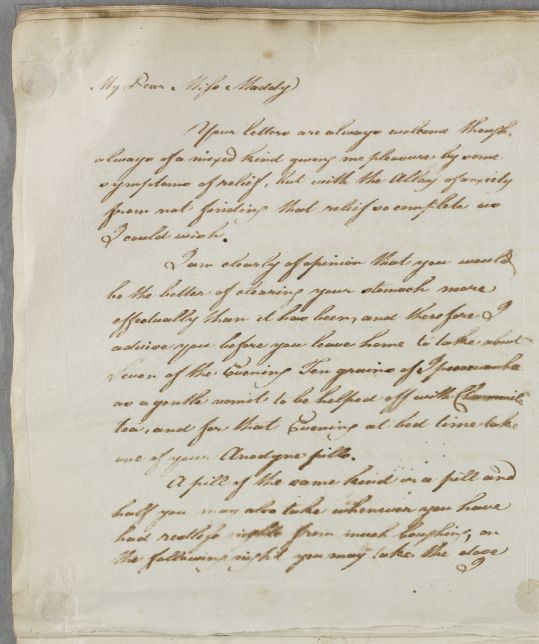 My Dear Miss Maddy
Your letters are always welcome though,
always of a mixed kind giving me pleasure by some
symptoms of relief, but with the Allay of anxiety
from not finding that relief so complete as
I could wish.
I am clearly of opinion that you would
be the better of clearing your stomach more
effectually than it has been, and therefore I
advise you before you leave home to take about
Seven of the Evening Ten grains of Ipecacuanha
as a gentle vomit to be helped off with Chamomile
tea, and for that Evening at bed time take
one of your Anodyne pills.
A pill of the same kind or a pill and
half you may also take whenever you have
had restless nights from much Coughing, on
the following night you may take the dose